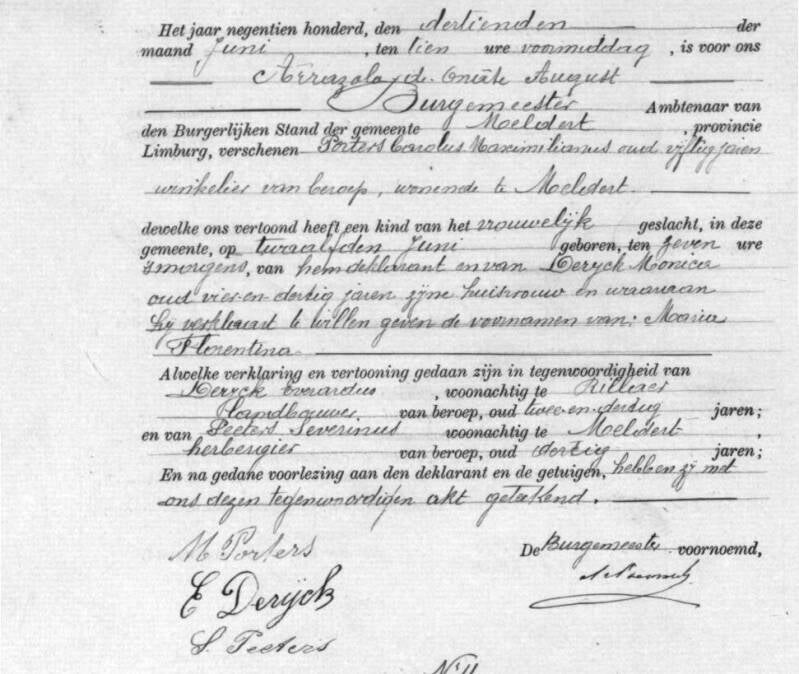 Het jaar negentien honderd, den dertienden der
maand Juni, ten tien ure voormiddag, is voor ons
Arrazola de Oñate August
Burgemeester Ambtenaar van
den Burgerlijken Stand der gemeente Meldert, provincie
Limburg, verschenen Porters Carolus Maximilianus oud vijftig jaren
winkelier van beroep, wonende te Meldert.
dewelke ons vertoond heeft een kind van het vrouwelijk geslacht, in deze
gemeente, op twaalfden Juni geboren, ten zeven ure
's morgens, van hem deklarant en van Deryck Monica
oud vier en dertig jaren zijne huisvrouw en waaraan
hij verklaart te willen geven de voornamen van: Maria
Florentina.
Alwelke verklaring en vertooning gedaan zijn in tegenwoordigheid van
Deryck Everardus, woonachtig te Rillaer
landbouwer van beroep, oud twee en dertig jaren;
en van Peeters Severinus woonachtig te Meldert,
herbergier van beroep, oud dertig jaren;
En na gedane voorlezing aan den deklarant en de getuigen, hebben zij met
ons dezen tegenwoordigen akt geteekend.
M Porters
De Burgemeester voornoemd,
E Derÿck
S. Peeters